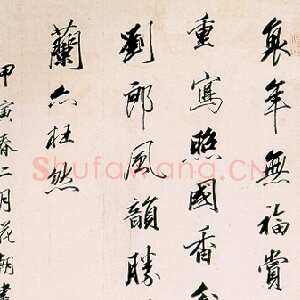 年無福賞
重寫照國香
劉郎風韻勝
蘭亦枉然
甲寅春二月花朝書
Shufawang.CN